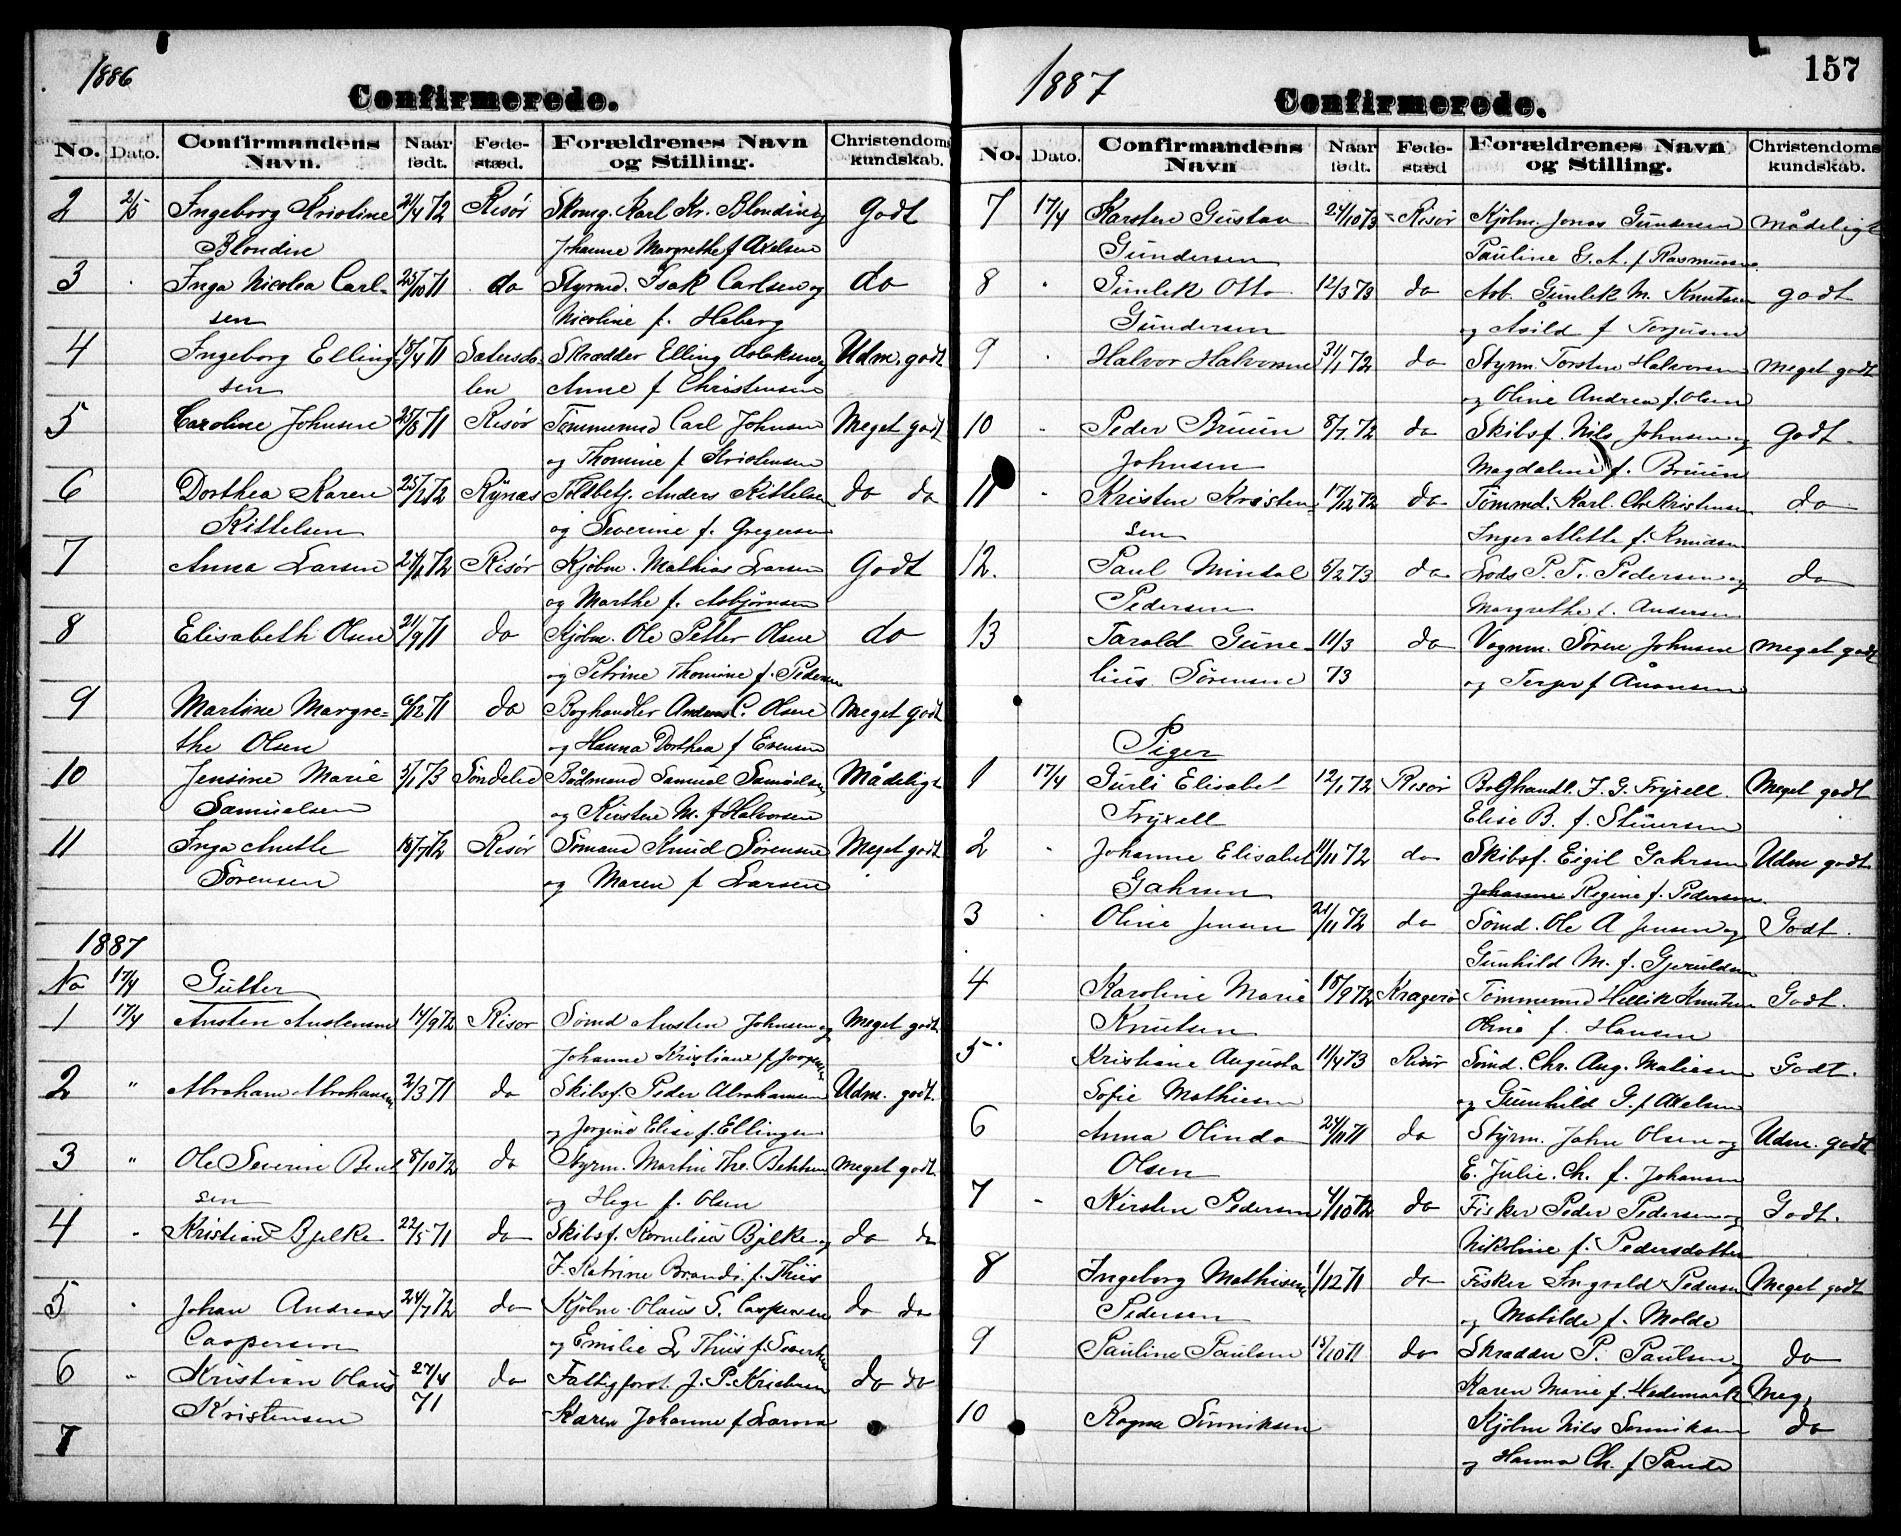 1886
Confirmerede.
No. Dato. Confirmandens Navn. Naar født. Føde-stæd. Forældrenes Navn og Stilling. Christendoms kundskab.
2 2/5 Ingeborg Kristine 21/4 72 Risør Skomg. Karl Kr. Blondin og Godt
Blondin Johanne Margrethe f Axelsen
3 Inga Nicolea Carl- 25/10 71 do Styrmd. Isak Carlsen og do
sen Nicoline f. Heberg
4 Ingeborg Elling 18/4 71 Sætersda- Skrædder Elling Aslaksen og Udm. godt
sen len Anne f Christensen
5 Caroline Johnsen 25/8 71 Risør Tømmermd Carl Johnsen Meget godt
og Thomine f Kristensen
6 Dorthea Karen 25/2 72 Rynæs Toldbetj. Anders Kittelsen do do
Kittelsen og Severine f. Gregersen
7 Anna Larsen 21/1 72 Risør Kjøbm. Mathias Larsen Godt
og Marthe f. Asbjørnsen
8 Elisabeth Olsen 21/9 71 do Kjøbm. Ole Petter Olsen do
og Petrine Thomine f. Pedersen
9 Martine Margre- 6/12 71 do Boghandler Anders C. Olsen Meget godt
the Olsen og Hanna Dorthea f Evensen
10 Jensine Marie 5/1 73 Søndeled Bødmand Samuel Samuelsen Mådeligt
Samuelsen og Kirstine M. f Halvorsen
11 Inga Anette 18/7 72 Risør Sømand Knud Sørensen Meget godt
Sørensen og Maren f Larsen
1887
No 17/4 Gutter
1 17/4 Austen Austensen 14/9 72 Risør Sømd Austen Johnsen og Meget godt
Johanne Kristiane f Jespersen
2 " Abraham Abrahamsen 2/3 71 do Skibsf. Peder Abrahamsen Udm. godt.
og Jørgine Elise f. Ellingsen
3 " Ole Severin Bent 8/10 72 do Styrm. Martin The. Bentsen Meget godt.
sen og Hege f. Olsen
4 Kristian Bjelke 22/5 71 do Skibsf. Kornelius Bjelke og do do
J. Katrine Brandi f. Thiis
5 Johan Andreas 24/7 72 do Kjøbm. Olaus S. Caspersen do do
Caspersen og Emilie L Thiis f.
6 " Kristian Olaus 27/4 do Fattigforst. J. P. Kristensen do do
Kristensen 71 Karen Johanne f Larsen
7
1887
Confirmerede.
157
No. Dato. Confirmandens Navn Naar født. Føde-stæd Forældrenes Navn og Stilling. Christendoms kundskab.
7 17/4 Karsten Gustav 24/10 73 Risør Kjøbm. Jonas Gundersen Mådeligt
Gundersen Pauline G. A. f Rasmussen.
8 Gunlek Otto 12/3 73 do Arb. Gunlek M. Knutsen godt
Gundersen og Asild f Terjusen
9 Halvor Halvorsen 31/1 72 do Styrm. Torsten Halvorsen Meget godt
og Oline Andrea f. Olsen
10 Peder Bruun 8/7 72 do Skibsf. Nils Johnsen og Godt.
Johnsen Magdaline f. Bruun
11 Kristen Kristen 17/12 72 do Tømmd. Karl Chr Kristensen do
sen Inger Mette f. Knudsen
12. Paul Mindal 5/2 73 do Lods P. T. Pedersen og do
Pedersen Margrethe f. Andersen
13 Tarald Gune- 11/3 do Vognm. Søren Johnsen Meget godt
lius Sørensen 73 og Terjer f Aanonsen
Piger
1 17/4 Gurli Elisabet 12/1 72 Risør Boghandl. F. G. Fryxell Meget godt
Fryxell Elise B. f. Stiansen
2 Johanne Elisabet 11/11 72 do Skibsf. Eigil Gahrsen Udm godt
Gahrsen Johanne Regine f. Pedersen.
3 Oline Jensen 21/11 72 do Sømd. Ole A Jensen og Godt.
Gunhild M. f. Gjeruldsen
4 Karoline Marie 18/9 72 Kragerø Tømmermd Hellik Knutsen Godt.
Knutsen Oline f. Hansen
5 Kristiane Augusta 11/4 73 Risør Sømd. Chr. Aug. Matiesen Godt.
Sofie Mathiesen og Gunhild G. f Axelsen
6 Anna Olinda 24/10 71 do Styrm. John Olsen og Udm. godt
Olsen E. Julie Ch. f. Johansen
7 Kirsten Pedersen 4/10 72 do Fisker Peder Pedersen og Godt.
Nikoline f. Pedersdotter
8 Ingeborg Mathisine 1/12 71 do Fisker Ingvald Pedersen Meget godt
Pedersen og Matilde f. Molde
9 Pauline Paulsen 15/10 71 do Skrædder P. Paulsen og do
Karen Marie f. Hedemark Meg,
10 Ragna Sønniksen Kjøbm Nils Sønniksen do
og Hanna Ch. f Sande